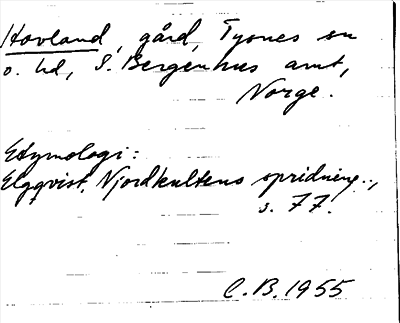 Hovland, gård, Tysnes sn
o. hd, S. Bergenhus amt,
Norge.
Etymologi:
Elgqvist, Njordkultens spridning.,
s. 77.
C.B. 1955